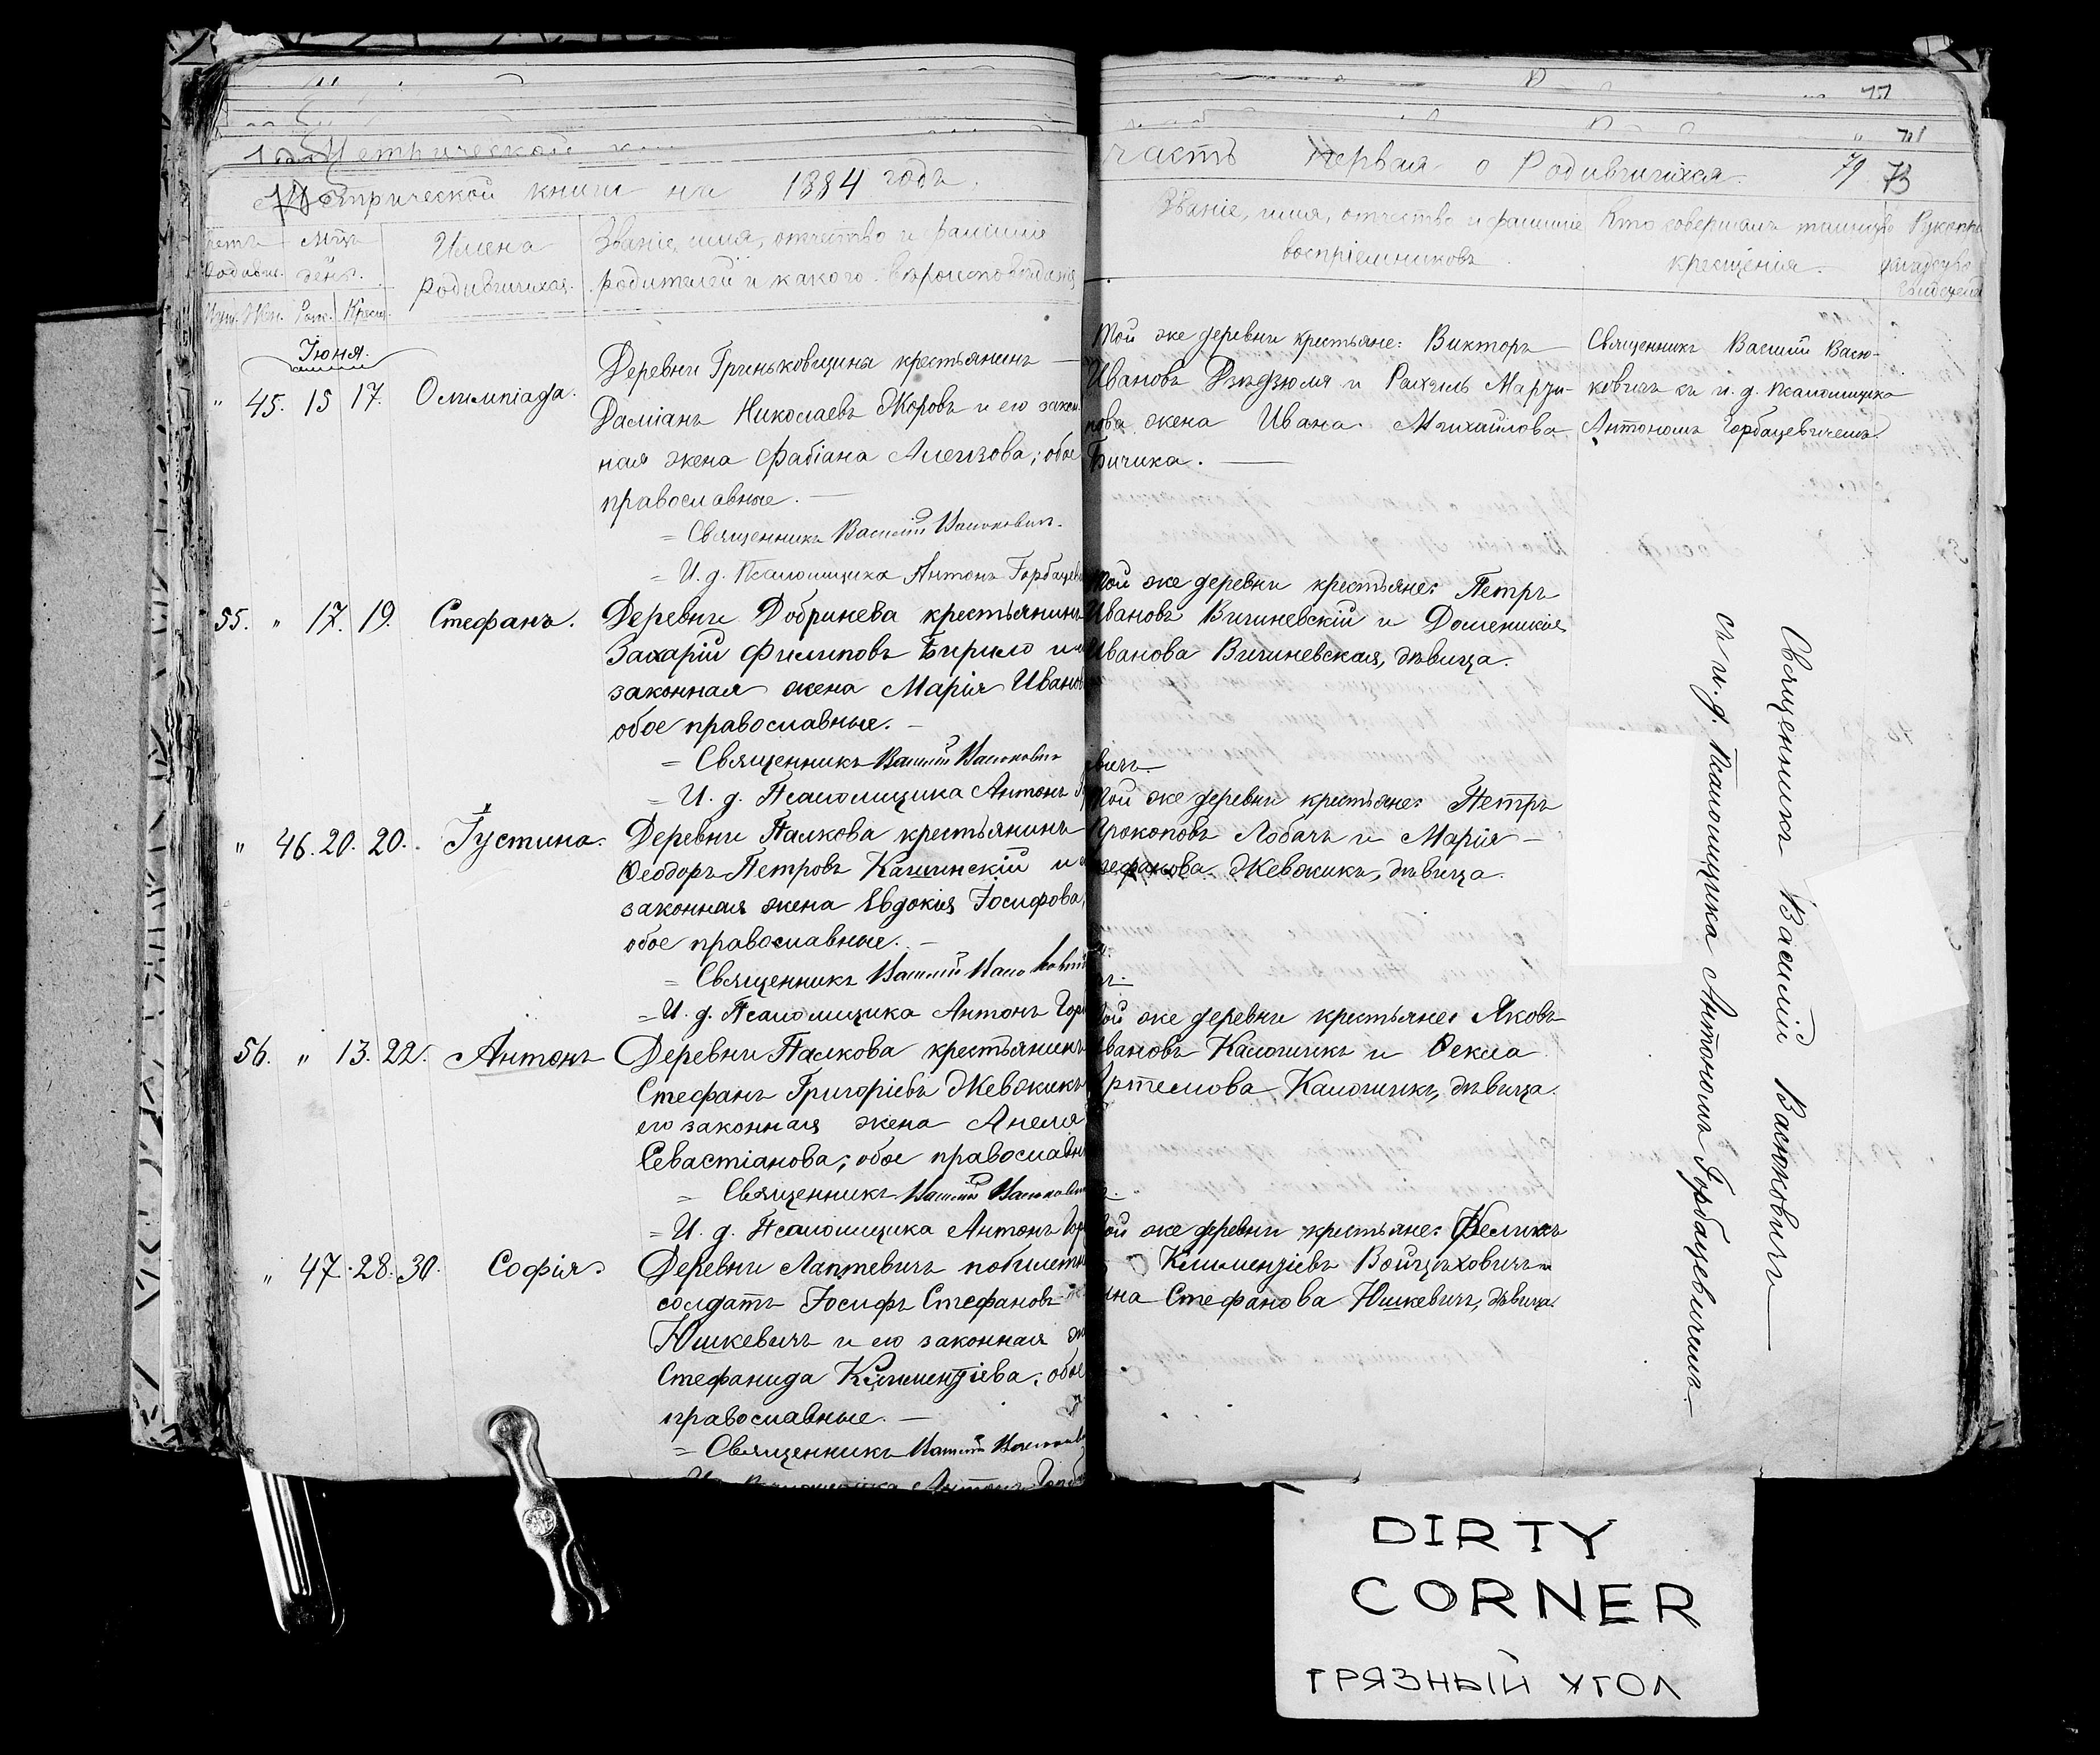 Метрической книги на 1884 годъ.
часть первая о Родившихся. 79 73
Счетъ родивш.
Мѣц. день.
Имена родившихся.
Званіе, имя, отчество и фамилія
родителей и какого вѣроисповѣданія
Званіе, имя, отчество и фамилія
воспріемниковъ.
Кто совершалъ таинство
крещенія.
Муж. Жен. Рож. Крещ.
Іюня.
" 45. 15 17. Олимпіада.
Деревни Гриньковщина крестьянинъ
Даміанъ Николаевъ Жоровъ и его закон
ная жена Фабіана Алеизова; обое
православные.
= Священникъ Василій Васюковичъ.
= И. д. Псаломщика Антонъ Горбацеви
Той же деревни крестьяне: Викторъ
Ивановъ Дзѣдзюля и Рахиль Марти-
нова жена Ивана Михайлова
Бичика.
Священникъ Василій Васю-
ковичъ съ и. д. псаломщика
Антономъ Горбацевичемъ.
55. " 17. 19. Стефанъ.
Деревни Добринева крестьянинъ
Захарій Филиповъ Бирило и
законная жена Марія Иванов
обое православные.
= Священникъ Василій Васюковичъ
= И. д. Псаломщика Антонъ
Той же деревни крестьяне: Петръ
Ивановъ Вишневскій и Доменикія
Иванова Вишневская, дѣвица.
вичъ.
" 46. 20. 20. Іустина.
Деревни Палкова крестьянинъ
Ѳеодоръ Петровъ Кашинскій и
законная жена Евдокія Іосифова,
обое православные.
= Священникъ Василій Васюкович
= И. д. Псаломщика Антонъ Гор
Той же деревни крестьяне: Петръ
Прокоповъ Лобачъ и Марія
Стефанова Жевжикъ, дѣвица.
56. " 13. 22. Антонъ
Деревни Палкова крестьянинъ
Стефанъ Григоріевъ Жевжикъ
его законная жена Анеля
Севастіанова; обое православн
= Священникъ Василій Васюкович
= И. д. Псаломщика Антонъ Гор
Той же деревни крестьяне: Яковъ
Ивановъ Калошикъ и Ѳекла
Артемова Калошикъ, дѣвица.
" 47. 28. 30. Софія.
Деревни Лаптевичъ побилетн
солдатъ Іосифъ Стефановъ
Юшкевичъ и его законная
Стефанида Климентіева; обое
православные.
= Священникъ Василій Васюков
И. д. Псаломщика Антонъ Горб
Той же деревни крестьяне: Феликсъ
Климентіевъ Войцѣховичъ и
ина Стефанова Юшкевичъ, дѣвица.
Священникъ Василій Васюковичъ
съ и. д. Псаломщика Антономъ Горбацевичемъ.
DIRTY
CORNER
ГРЯЗНЫЙ УГОЛ